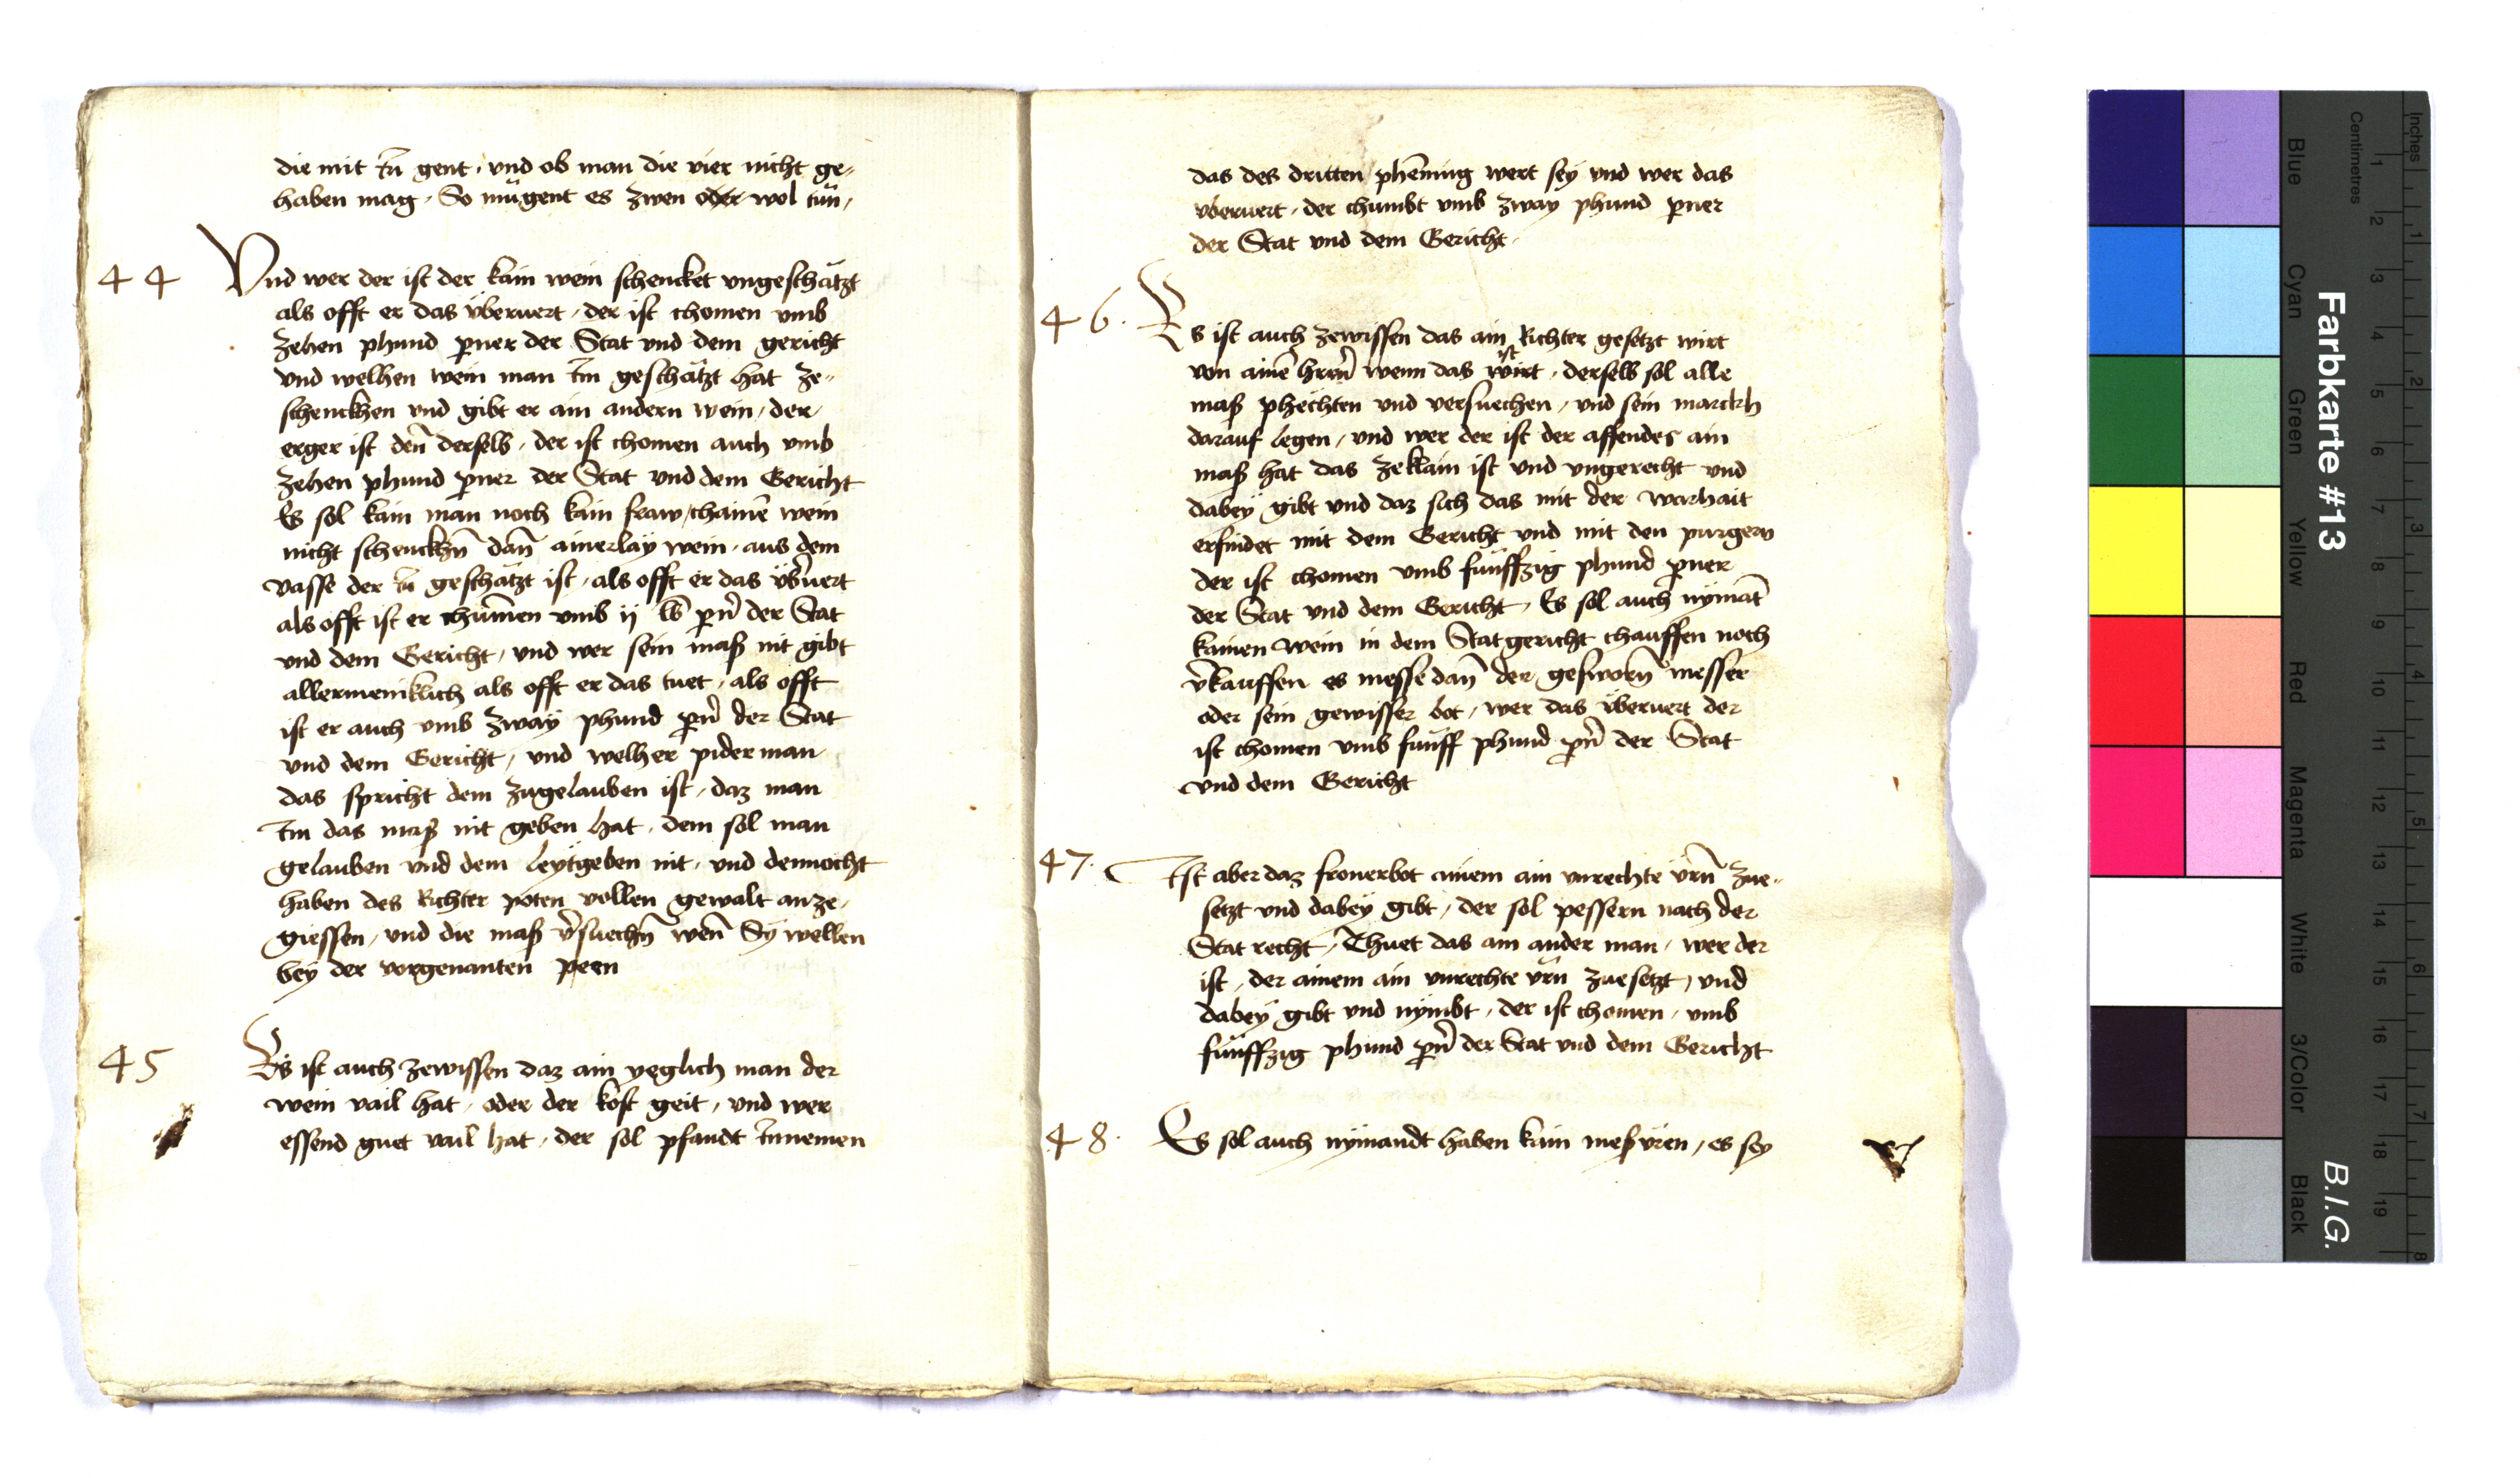 die mit in gent, und ob man die vier nicht ge-
haben mag, So mügent es zwen oder wol tün,
44 Und wer der ist der kain wein schencket ungeschätzt
als offt er das überuert, der ist chomen umb
zehen phund perner der Stat und dem gericht
und welhen wein man im geschätzt hat ze-
schenckhen und gibt er ain andern wein, der
erger ist den̄ derselb, der ist chomen auch umb
zehen phund perner der Stat und dem Gericht
Es sol kain man noch kain fraw, chainē wein
nicht schenckhn̄ dan̄ ainerlaÿ wein, aus dem
vasse der in geschätzt ist, als offt er das übuert
als offt ist er chumen umb ij lb pn̄ der Stat
und dem Gericht, und wer sein maß nit gibt
allermeniklich als offt er das tuet, als offt
ist er auch umb zwaÿ phund pn̄ der Stat
und dem Gericht, und welher piderman
das spricht dem zugelauben ist, daz man
Im das maß nit geben hat, dem sol man
gelauben und dem leÿtgeben nit, und dennocht
haben des Richter poten vollen gewalt anze-
giessen, und die maß v̄suechn̄ wen̄ Sÿ wellen
beÿ der vorgenanten peen
45 Es ist auch zewissen daz ain yeglich man der
wein vail hat, oder der kost geit, und wer
essend guet vail hat, der sol pfandt Innemen
das des dritten phēning wert seÿ und wer das
überuert, der chumbt umb zwaÿ phund perner
der Stat und dem Gericht,
46. Es ist auch zewissen das ain Richter gesetzt wirt
ist
von ainē hern̄ wenn das wirt, derselb sol alle
maß phechten und versuechen, und sein marckh
darauf legen, und wer der ist der affendes ain
maß hat das zeklain ist und ungerecht und
dabeÿ gibt und daz sich das mit der warhait
erfindet mit dem Gericht und mit den purgern
der ist chomen umb fünffzig phund perner
der Stat und dem Gericht, Es sol auch nÿmāt
kainen wein in dem Statgericht chauffen noch
v̄kauffen es messe dan̄ der gesworn̄ messer
oder sein gewisser bot, wer das überuert der
ist chomen umb fünff phund pn̄ der Stat
und dem Gericht
47. Ist aber daz fronerbot ainem ain unrechte ürn̄ zue-
setzt und dabeÿ gibt, der sol pessern nach der
Stat recht, Thuet das ain ander man, wer der
ist, der ainem ain unrechte ürn̄ zuesetzt, und
dabeÿ gibt und nÿmbt, der ist chomen, umb
fünffzig phund pn̄ der Stat und dem Gericht
48. Es sol auch nÿmandt haben kain meßüren, es sey
Inches
Centimetres
1 2 3 4 5 6 7 8 9 10 11 12 13 14 15 16 17 18 19
1 2 3 4 5 6 7 8
Farbkarte #13
B.I.G.
Blue
Cyan
Green
Yellow
Red
Magenta
White
3/Color
Black